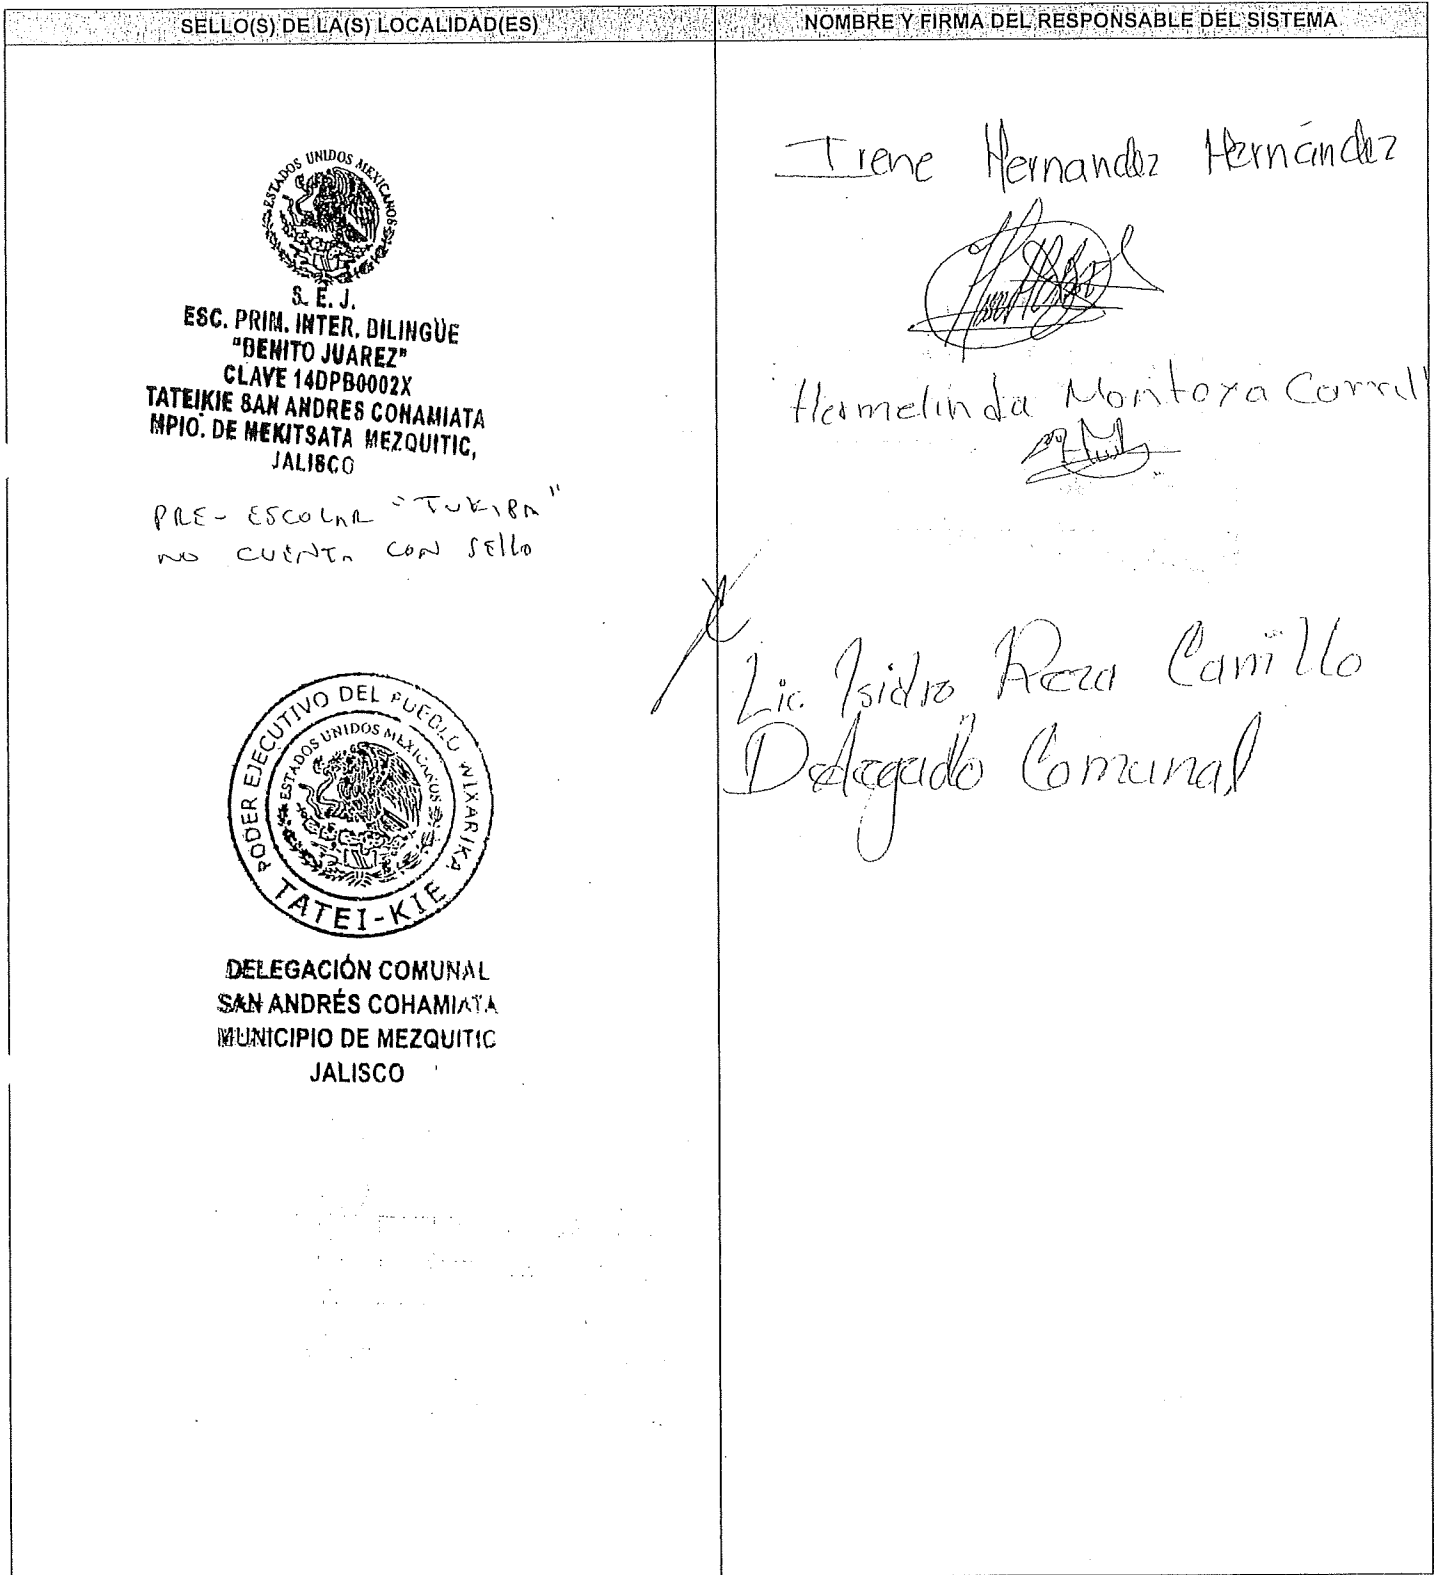 SELLO(S) DE LA(S) LOCALIDAD(ES)
NOMBRE Y FIRMA DEL RESPONSABLE DEL SISTEMA
ESTADOS UNIDOS MEXICANOS
S. E. J.
ESC. PRIM. INTER. BILINGÜE
"BENITO JUAREZ"
CLAVE 14DPB0002X
TATEIKIE SAN ANDRES COHAMIATA
MPIO. DE MEKITSATA MEZQUITIC,
JALISCO
PRE-ESCOLAR "TUKIPA"
NO CUENTA CON SELLO
PODER EJECUTIVO DEL PUEBLO WIXARIKA
ESTADOS UNIDOS MEXICANOS
TATEI-KIE
DELEGACIÓN COMUNAL
SAN ANDRÉS COHAMIATA
MUNICIPIO DE MEZQUITIC
JALISCO
Irene Hernandez Hernández
Hermelinda Montoya
Lic. Isidro Reza Carrillo
Delegado Comunal